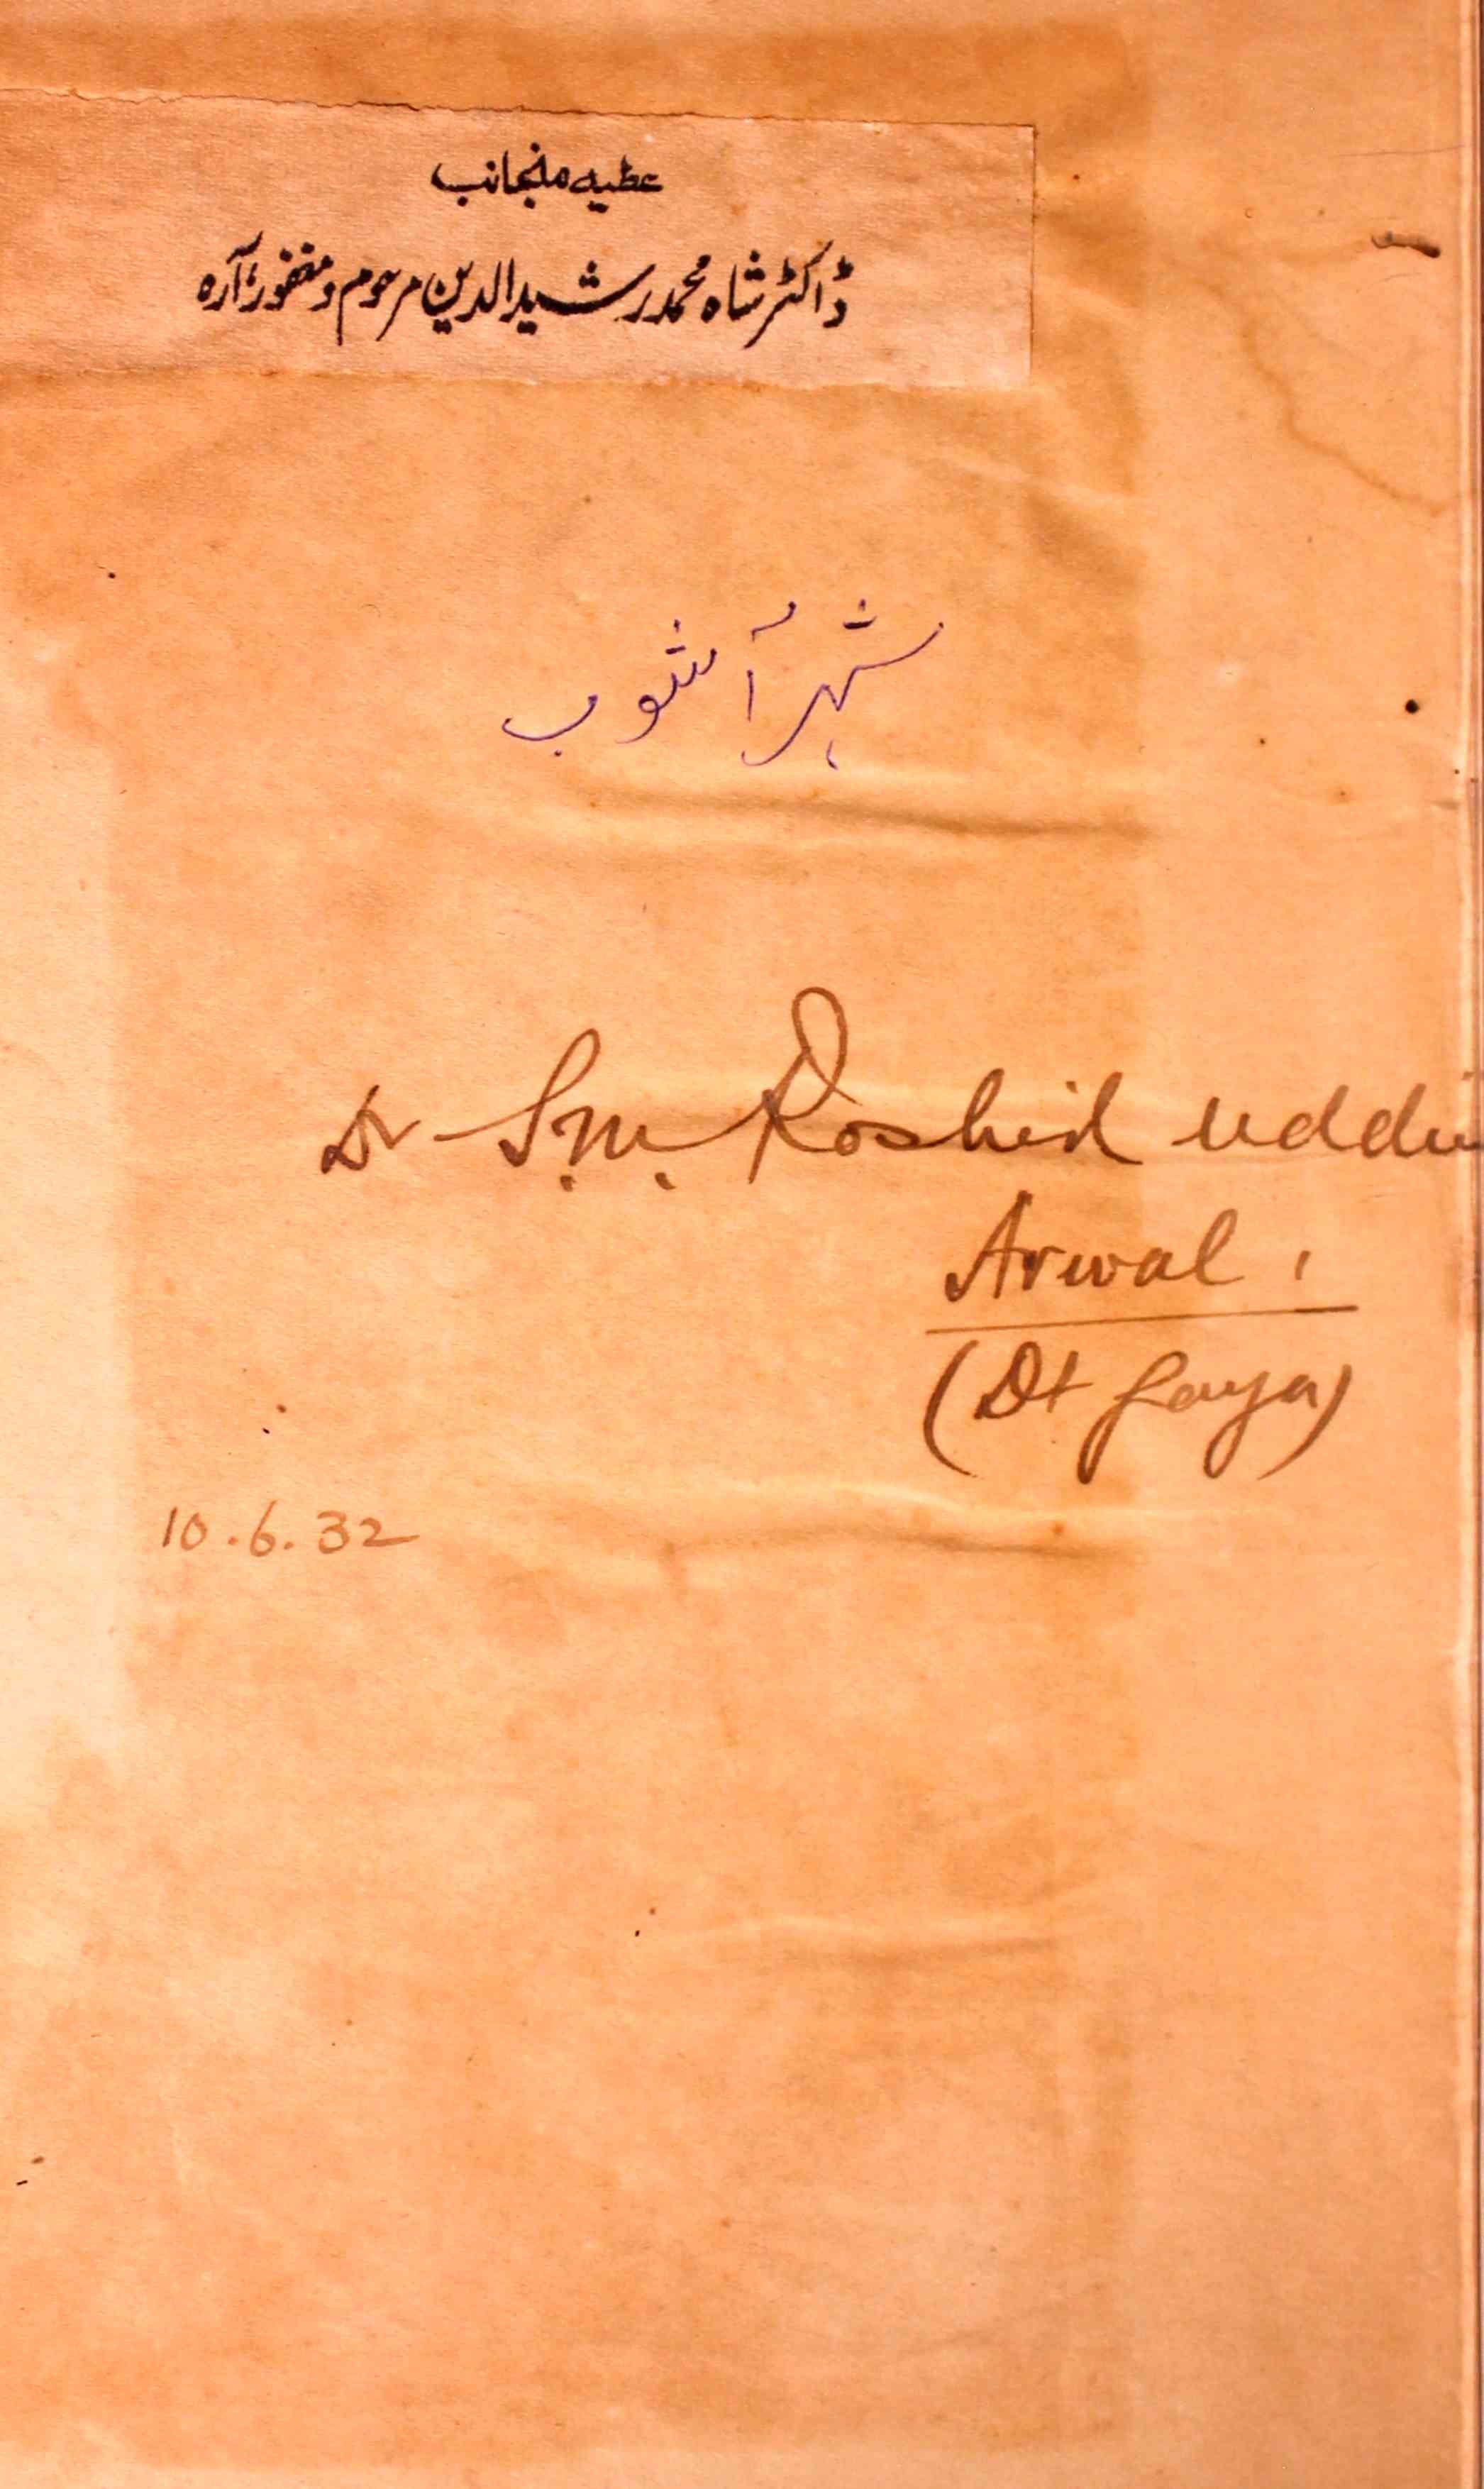 عطیہ منجانب
ڈاکٹر شاہ محمد رشید الدین مرحوم و مغفور، آرہ
شہر آشوب
Dr S.M. Rashid uddin
Arwal,
(Dt Gaya)
10.6.32